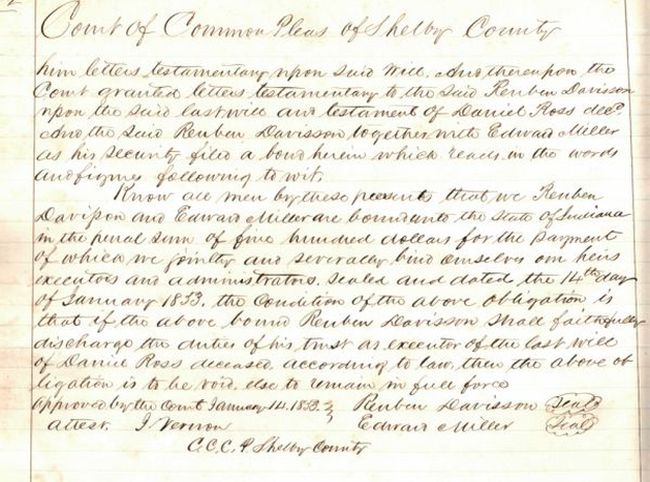 Court of Common Pleas of Shelby County
him letters testamentary upon said Will. And thereupon the
Court granted letters testamentary to the said Reuben Davisson
upon the said last will and testament of Daniel Ross decd.
And the said Reuben Davisson together with Edward Miller
as his security filed a bond herein which reads in the words
and figures following to wit.
Know all men by these presents that we Reuben
Davisson and Edward Miller are bound unto the State of Indiana
in the penal sum of five hundred dollars for the payment
of which we jointly and severally bind ourselves our heirs
executors and administrators. Sealed and dated the 14th day
of January 1853. the Condition of the above obligation is
that if the above bound Reuben Davisson shall faithfully
discharge the duties of his trust as executor of the last will
of Daniel Ross deceased according to law, then the above ob
ligation is to be void, else to remain in full force
Approved by the Court January 14. 1853. Reuben Davisson Seal
Attest. J Vernon Edward Miller Seal
C.C.C.P. Shelby County